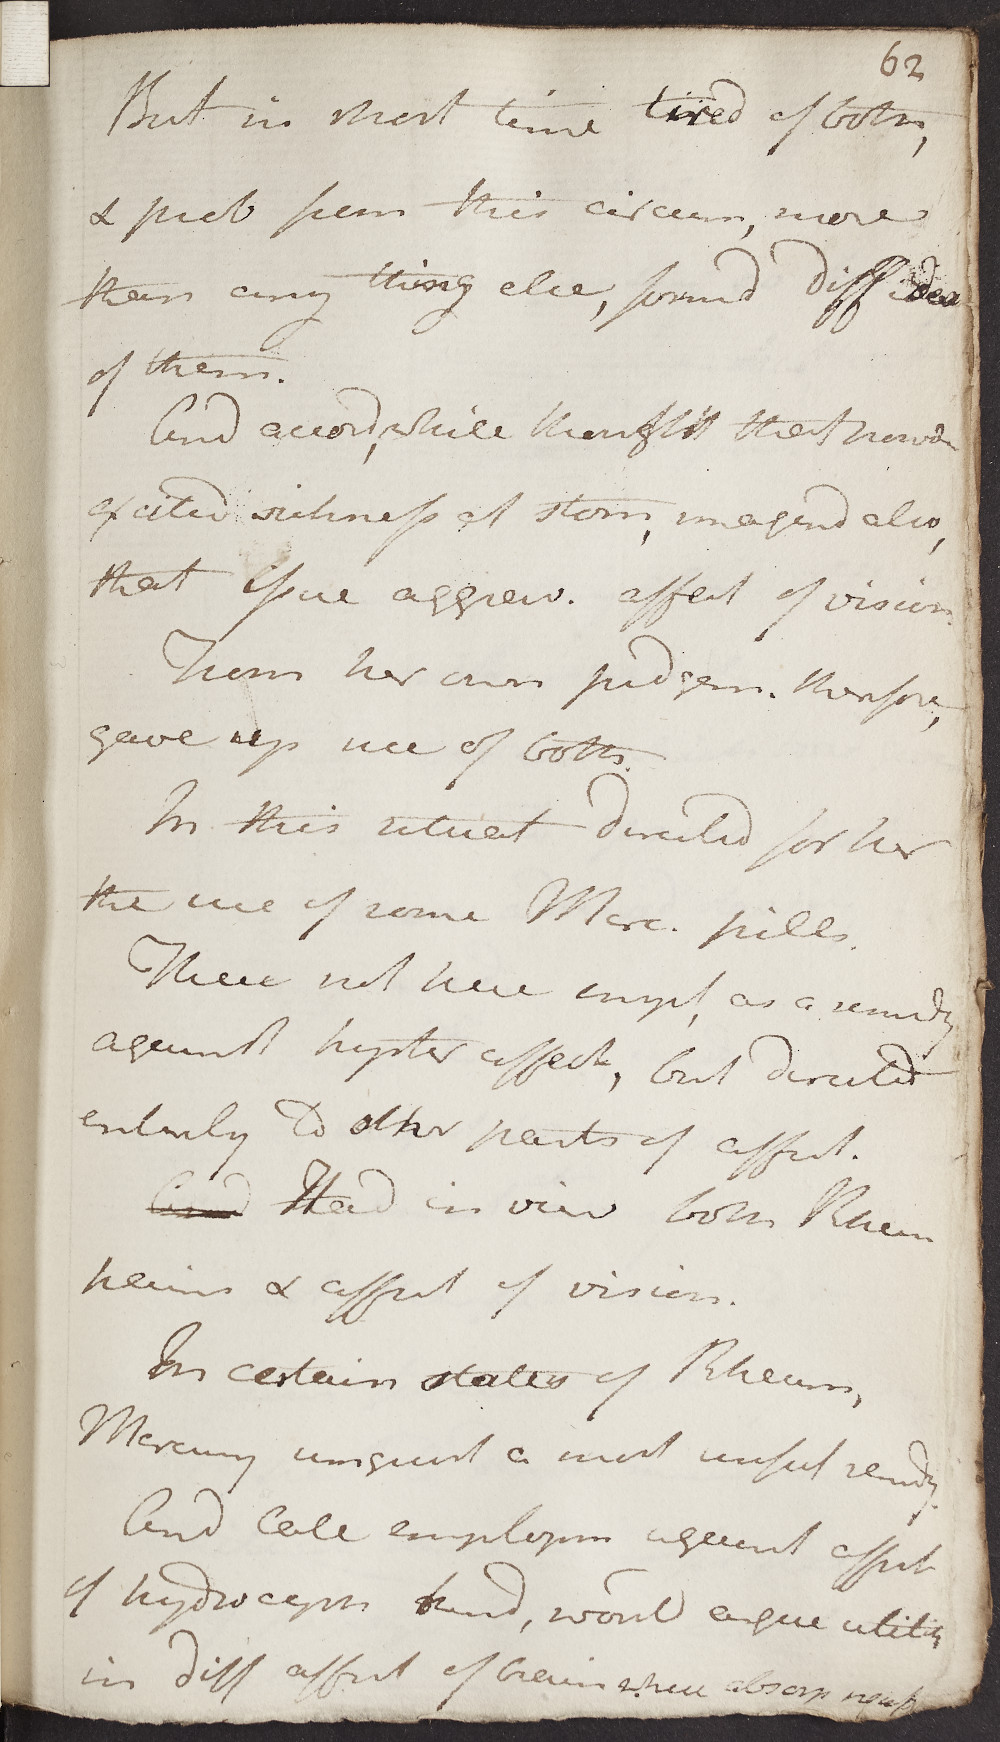 62
But in short time tired of both,
& prob from this circum, more
than any thing else, formd diff idea
of them.
And accord, while thought that powder
excited sickness at stom, imagend also,
that issue aggrav. affect of vision
From her own judgem. therefore,
gave up use of both.
In this situat directed for her
the use of some Merc. pills.
These not here empl, as a remedy
against hyster affect, but directed
entirely to other parts of affect.
And Had in view both Rheum
pains & affect of vision.
In certain states of Rheum,
Mercury unquest a most useful remdy.
And late employm against affect
of hydroceph kind, would argue utility
in diff affect of brain where absorp requir